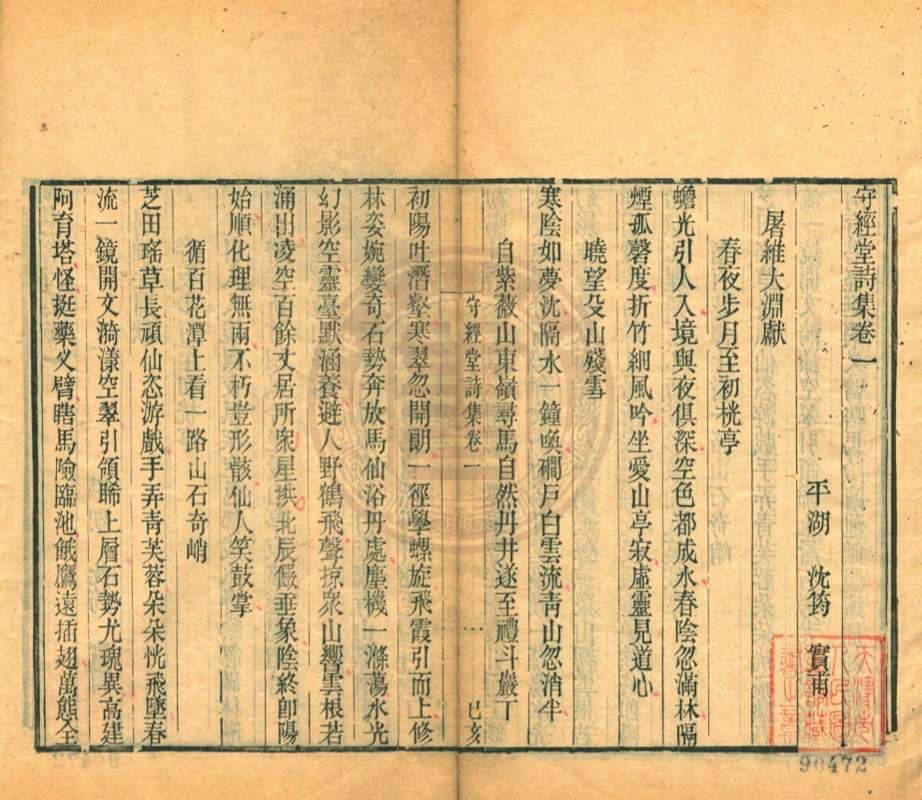 守經堂詩集卷一
平湖 沈筠 實甫
屠維大淵獻
春夜步月至初桄亭
蟾光引人入境與夜俱深空色都成水春陰忽滿林隔
煙孤磬度折竹細風吟坐愛山亭寂虛靈見道心
曉望殳山殘雪
寒陰如夢沈隔水一鐘喚磵戶白雲流靑山忽消半
自紫薇山東嶺尋馬自然丹井遂至禮斗巖丁
守經堂詩集卷一
一
己亥
初陽吐潛壑寒翠忽開朗一徑學螺旋飛霞引而上修
林姿婉孌奇石勢奔放馬仙浴丹處塵機一滌蕩水光
幻影空靈臺默涵養避人野鶴飛聲掠衆山響雲根若
涌出凌空百餘丈居所衆星拱北辰儼垂象陰終卽陽
始順化理無兩不朽豈形骸仙人笑鼓掌
循百花潭上看一路山石奇峭
芝田瑤草長頑仙恣游戲手弄靑芙蓉朵朵恍飛墜春
流一鏡開文漪漾空翠引領睎上層石勢尤瑰異高建
阿育塔怪挺藥叉臂瞎馬險臨池餓鷹遠插翅萬態全
90472